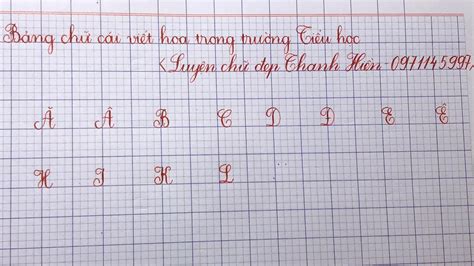 Bảng chữ cái viết hoa trong trường Tiểu học
<Luyện chữ đẹp Thanh Hiền - 0971145997
Ă Â B C D Đ E Ê
H I K L